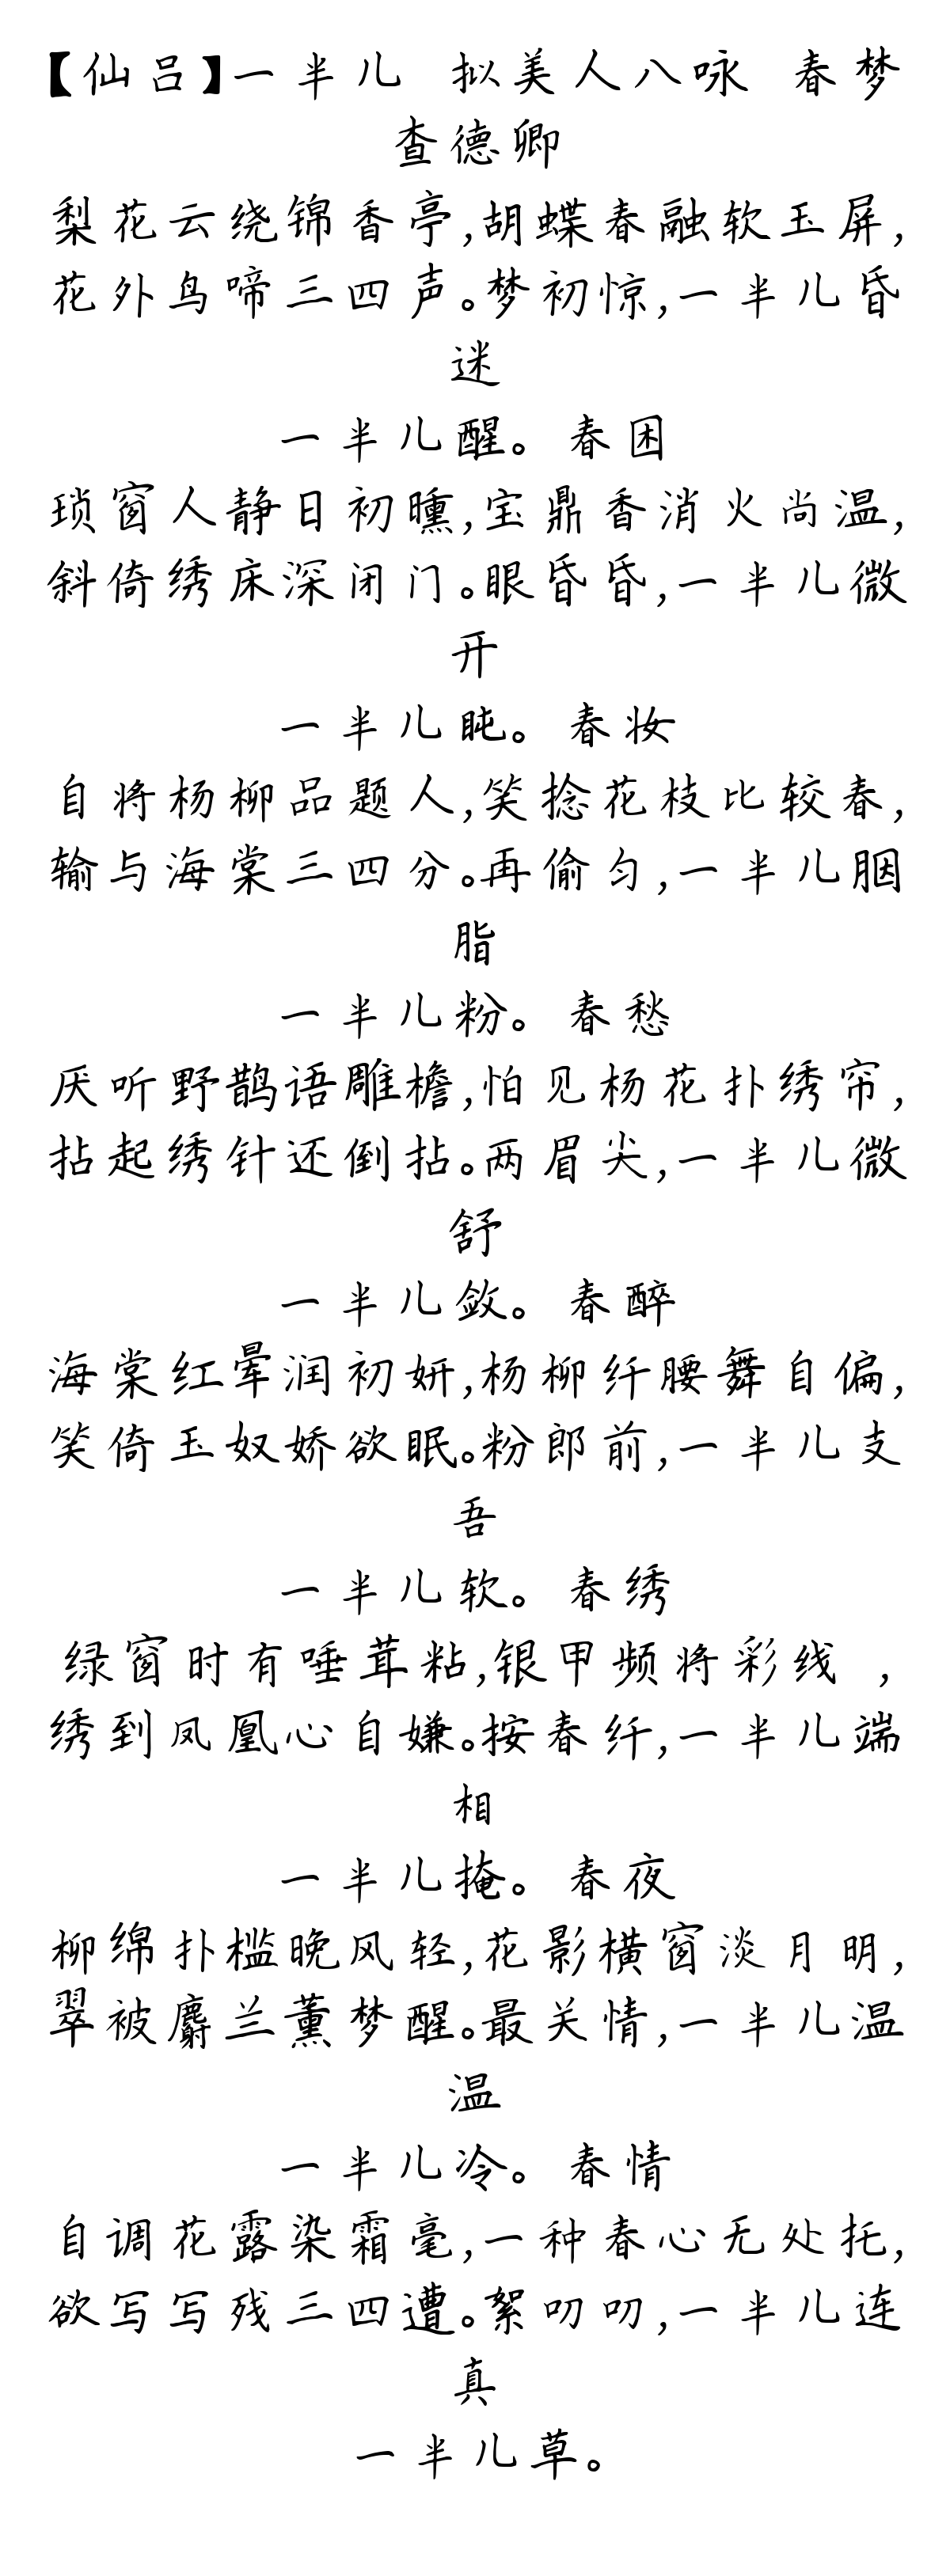 【仙吕】一半儿 拟美人八咏 春梦
查德卿
梨花云绕锦香亭,胡蝶春融软玉屏,
花外鸟啼三四声。梦初惊,一半儿昏
迷
一半儿醒。春困
琐窗人静日初曛,宝鼎香消火尚温,
斜倚绣床深闭门。眼昏昏,一半儿微
开
一半儿盹。春妆
自将杨柳品题人,笑捻花枝比较春,
输与海棠三四分。再偷匀,一半儿胭
脂
一半儿粉。春愁
厌听野鹊语雕檐,怕见杨花扑绣帘,
拈起绣针还倒拈。两眉尖,一半儿微
舒
一半儿敛。春醉
海棠红晕润初妍,杨柳纤腰舞自偏,
笑倚玉奴娇欲眠。粉郎前,一半儿支
吾
一半儿软。春绣
绿窗时有唾茸粘,银甲频将彩线 ,
绣到凤凰心自嫌。按春纤,一半儿端
相
一半儿掩。春夜
柳绵扑槛晚风轻,花影横窗淡月明,
翠被麝兰薰梦醒。最关情,一半儿温
温
一半儿冷。春情
自调花露染霜毫,一种春心无处托,
欲写写残三四遭。絮叨叨,一半儿连
真
一半儿草。